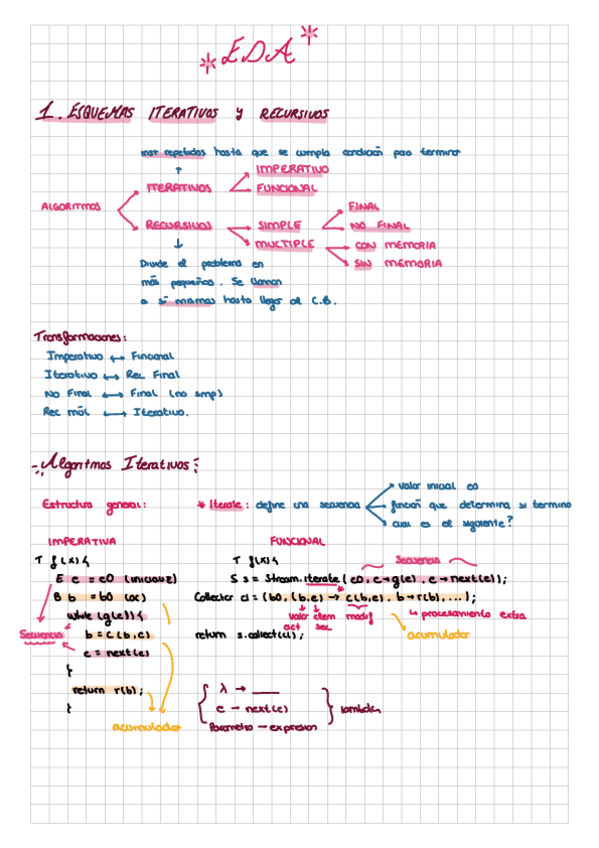 EDA
1. ESQUEMAS ITERATIVOS y RECURSIVOS
inst repetidas hasta que se cumpla condición para terminar
IMPERATIVO
ITERATIVOS
FUNCIONAL
ALGORITMOS
FINAL
RECURSIVOS → SIMPLE
NO FINAL
MULTIPLE → CON MEMORIA
SIN MEMORIA
Divide el problema en
más pequeños. Se llaman
a sí mismas hasta llegar al C.B.
Transformaciones:
Imperativo ↔ Funcional
Iterativo ↔ Rec Final
No Final ↔ Final (no smp)
Rec múl ↔ Iterativo.
- Algoritmos Iterativos:
valor inicial e0
Estructura general: * Iterate: define una secuencia función que determina si termina
cual es el siguiente?
IMPERATIVA FUNCIONAL
T f(x){ T f(x){ Secuencia
E e = e0 (inicializ) S s = Stream.iterate(e0, e→g(e), e→next(e));
B b = b0 (ac) Collector cl = (b0, (b,e) → c(b,e), b→r(b), ...);
while (g(e)){ valor elem modif ↳ procesamiento extra
act sec
Secuencia b = c(b,e) return s.collect(cl); acumulador
e = next(e)
}
return r(b); λ → ___
} e → next(e) lambda
acumulador Parametro → expresion